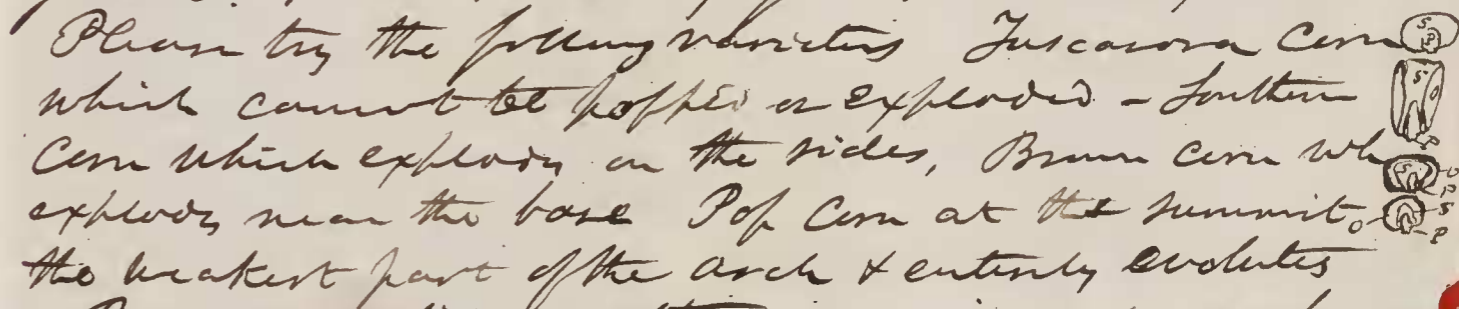 Please try the following varieties Tuscarora Corn
which cannot be popped or exploded - Southern
Corn which explodes on the sides, Brown corn wh
explodes near the base Pop Corn at the summit
the weakest part of the arch & entirely evolutes